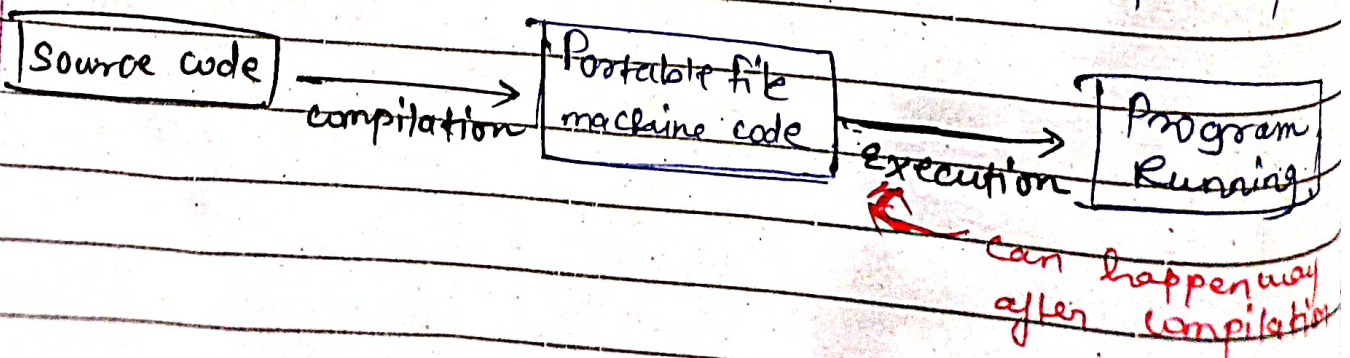 Source code
compilation
Portable file
machine code
Execution
Program
Running
can happen way
after compilation